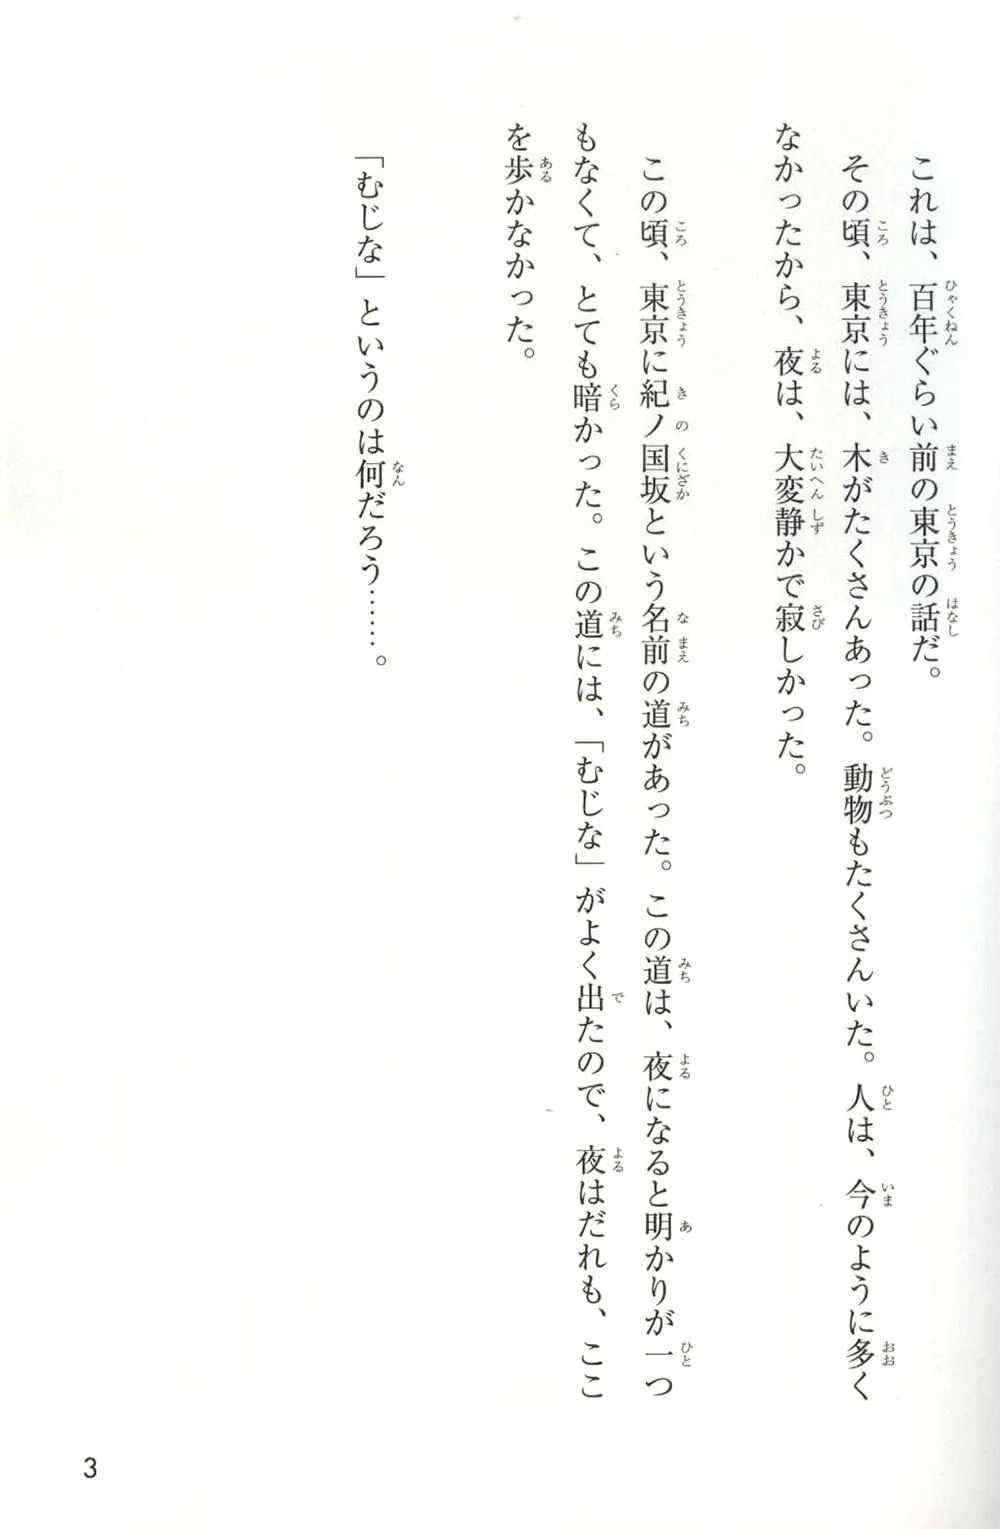 これは、百年ぐらい前の東京の話だ。
その頃、東京には、木がたくさんあった。動物もたくさんいた。人は、今のように多く
なかったから、夜は、大変静かで寂しかった。
この頃、東京に紀ノ国坂という名前の道があった。この道は、夜になると明かりが一つ
もなくて、とても暗かった。この道には、「むじな」がよく出たので、夜はだれも、ここ
を歩かなかった。
「むじな」というのは何だろう……。
3